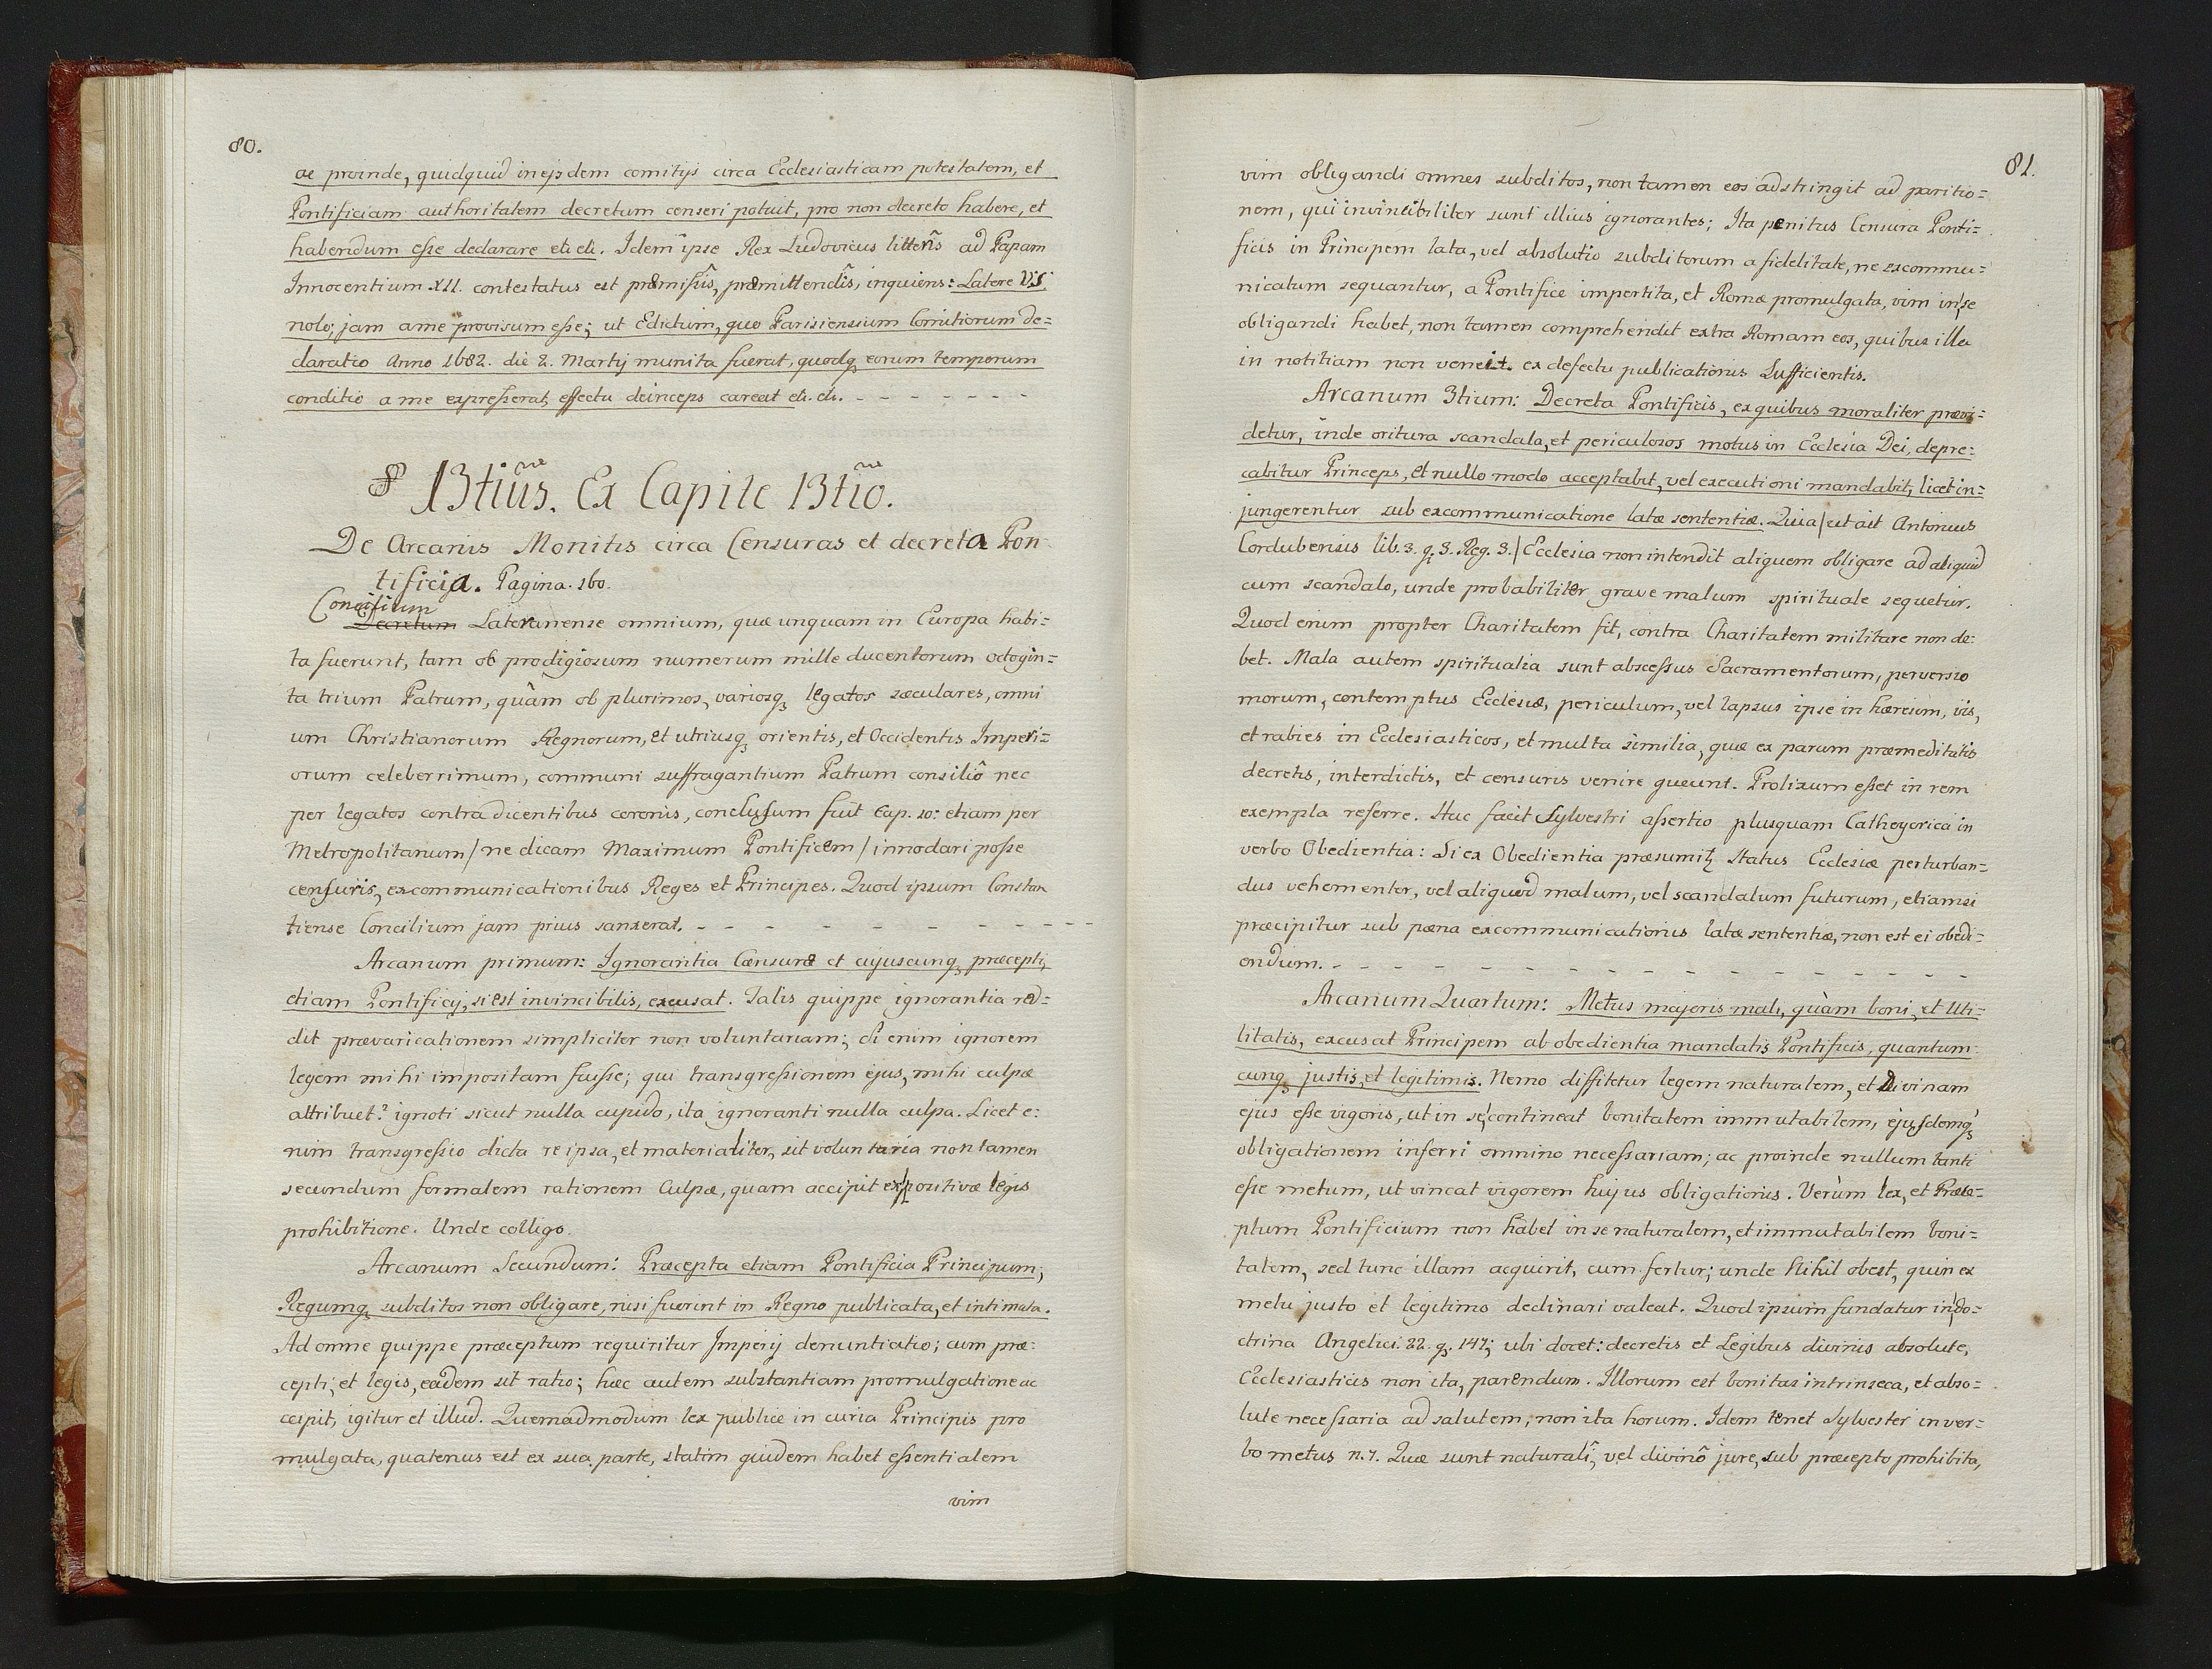 80.
ac proinde, quidquid in ejsdem comitijs circa Ecclesiasticam potestatem, et
Pontificiam authoritatem decretum censeri potuit, pro non decreto habere, et
habendum esse declarare etc etc. Idem ipse Rex Ludovicus litteris ad Papam
Innocentium XII. contestatus est præmissis, præmittendis, inquiens: Latere V.S.
nolo; jam a me provisum esse; ut Edictum, quo Parisiensium Comitiorum de=
claratio Anno 1682. die 2. Martij munita fuerat, quodq3 eorum temporum
conditio a me expresserat, effectu deinceps careat etc. etc. - - - - - - -
§ 13tius. Ex Capite 13tio.
De Arcanis Monitis circa Censuras et decreta Pon
tificia. Pagina. 160.
Concilium
Decretum Lateranense omnium, quæ unquam in Europa habi=
ta fuerunt, tam ob prodigiosum numerum mille ducentorum octogin=
ta trium Patrum, quàm ob plurimos, variosq3 legatos sæculares, omni
um Christianorum Regnorum, et utriusq3 orientis, et Occidentis Imperi=
orum celeberrimum, communi suffragantium Patrum consiliô nec
per legatos contradicentibus coronis, conclusum fuit Cap. 10: etiam per
Metropolitanum / ne dicam Maximum Pontificem / innodari posse
censuris, excommunicationibus Reges et Principes. Quod ipsum Constan
tiense Concilium jam prius sanxerat. - - - - - - - - - -
Arcanum primum: Ignorantia Censuræ et cujuscunq3 præcepti,
etiam Pontificij, si est invincibilis, excusat. Talis quippe ignorantia red=
dit prævaricationem simpliciter non voluntariam; si enim ignorem
legem mihi impositam fuisse; qui transgressionem ejus, mihi culpæ
attribuet? ignoti sicut nulla cupido, ita ignoranti nulla culpa. Licet e:
nim transgressio dicta re ipsa, et materialiter, sit voluntaria non tamen
secundum formalem rationem Culpæ, quam accipit ex positivæ legis
prohibitione. Unde colligo.
Arcanum Secundum: Præcepta etiam Pontificia Principum,
Regumq3 subditos non obligare, nisi fuerint in Regno publicata, et intimata.
Ad omne quippe præceptum requiritur Imperij denuntiatio; cum præ=
cepti, et legis, eadem sit ratio; hæc autem substantiam promulgatione ac
cepit, igitur et illud. Quemadmodum lex publice in curia Principis pro
mulgata, quatenus est ex sua parte, statim quidem habet essentialem
vim
81.
vim obligandi omnes subditos, non tamen eos adstringit ad paritio=
nem, qui invincibiliter sunt illius ignorantes; Ita penitus Censura Ponti=
ficis in Principem lata, vel absolutio subditorum a fidelitate, ne excommu=
nicatum sequantur, a Pontifice impertita, et Romæ promulgata, vim in se
obligandi habet, non tamen comprehendit extra Romam eos, quibus illa
in notitiam non venit. ex defectu publicationis sufficientis.
Arcanum 3tium: Decreta Pontificis, ex quibus moraliter prævi=
detur, inde oritura scandala, et periculosos motus in Ecclesia Dei, depre=
cabitur Princeps, et nullo modo acceptabit, vel executioni mandabit, licet in=
jungerentur sub excommunicatione latæ sententiæ. Quia / ut ait Antonius
Cordubensis lib. 3. q. 3. Reg. 3. / Ecclesia non intendit aliquem obligare ad aliquid
cum scandalo, unde probabiliter grave malum spirituale sequetur.
Quod enim propter Charitatem fit, contra Charitatem militare non de:
bet. Mala autem spiritualia sunt abscessus Sacramentorum, perversio
morum, contemptus Ecclesiæ, periculum, vel lapsus ipse in hæresim, vis,
et rabies in Ecclesiasticos, et multa similia, quæ ex parum præmeditatis
decretis, interdictis, et censuris venire queunt. Prolixum esset in rem
exempla referre. Huc facit Sylvestri assertio plusquam Cathegorica in
verbo Obedientia: Si ex Obedientia præsumitur status Ecclesiæ perturban=
dus vehementer, vel aliquod malum, vel scandalum futurum, etiamsi
præcipitur sub pæna excommunicationis latæ sententiæ, non est ei obedi=
endum. - - - - - - - - - - - - - - - - -
Arcanum Quartum: Metus majoris mali, quàm boni, et Uti=
litatis, excusat Principem ab obedientia mandatis Pontificis, quantum
cunq3 justis, et legitimis. Nemo diffitetur legem naturalem, et Divinam
ejus esse vigoris, ut in se contineat bonitatem immutabilem, ejusdemq3
obligationem inferri omnino necessariam; ac proinde nullum tanti
esse metum, ut vincat vigorem hujus obligationis. Verùm lex, et Præce=
ptum Pontificium non habet in se naturalem, et immutabilem boni=
tatem, sed tunc illam acquirit, cum fertur; unde Nihil obest, quin ex
metu justo et legitimo declinari valeat. Quod ipsum fundatur in do=
ctrina Angelici. 22. q. 147; ubi docet: decretis et Legibus divinis absolute,
Ecclesiasticis non ita, parendum. Illorum est bonitas intrinseca, et abso=
lute necessaria ad salutem, non ita horum. Idem tenet Sylvester in ver=
bo metus n. 7. Quæ sunt naturali, vel divinô jure, sub præcepto prohibita,